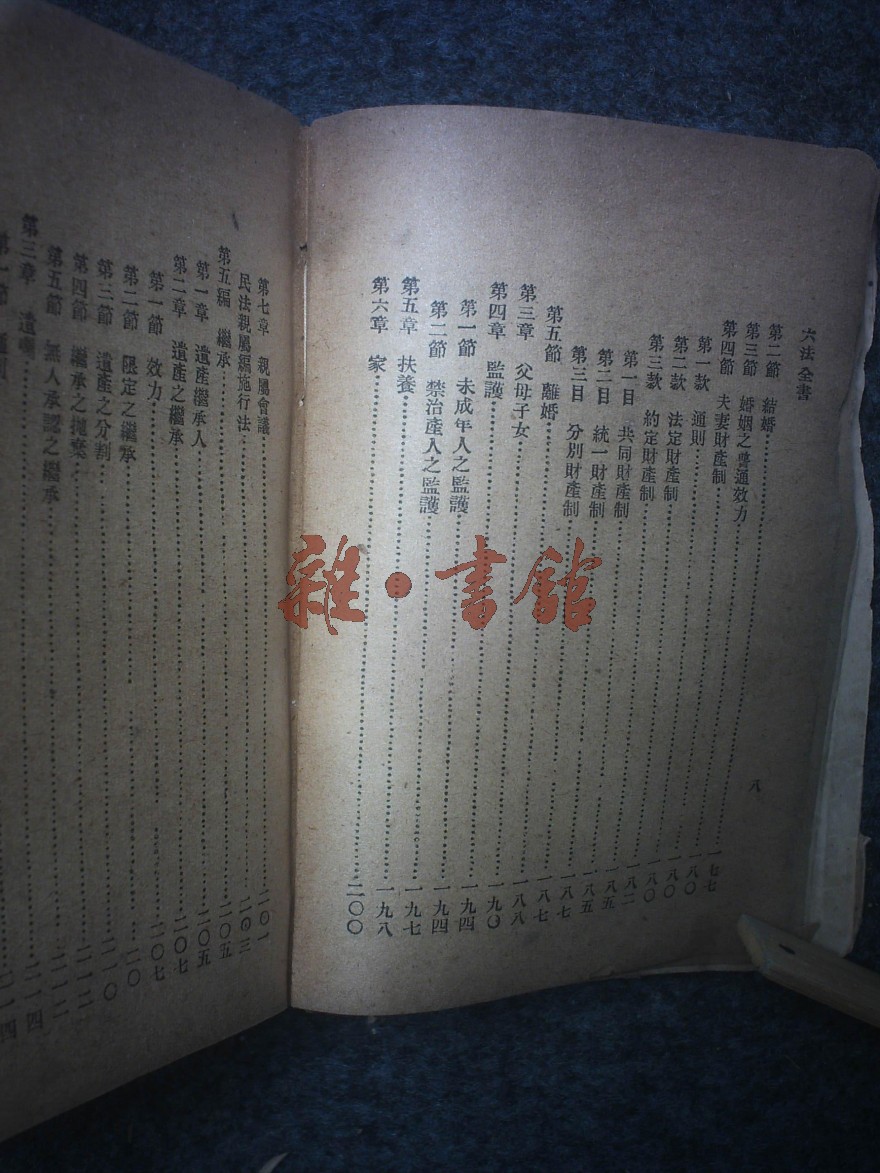 六法全書
八
第二節 結婚……一七七
第三節 婚姻之普通效力……一八〇
第四節 夫妻財產制……一八〇
第一款 通則……一八〇
第二款 法定財產制……一八二
第三款 約定財產制……一八五
第一目 共同財產制……一八五
第二目 統一財產制……一八七
第三目 分別財產制……一八七
第五節 離婚……一八八
第三章 父母子女……一九〇
第四章 監護……一九四
第一節 未成年人之監護……一九四
第二節 禁治產人之監護……一九七
第五章 扶養……一九八
第六章 家……二〇〇
第七章 親屬會議……二〇一
民法親屬編施行法……二〇三
第五編 繼承……二〇五
第一章 遺產繼承人……二〇五
第二章 遺產之繼承……二〇七
第一節 效力……二〇七
第二節 限定之繼承……
第三節 遺產之分割……二一〇
第四節 繼承之拋棄……二一二
第五節 無人承認之繼承……二一二
第三章 遺囑……二一四
第一節 通則
雜·書館